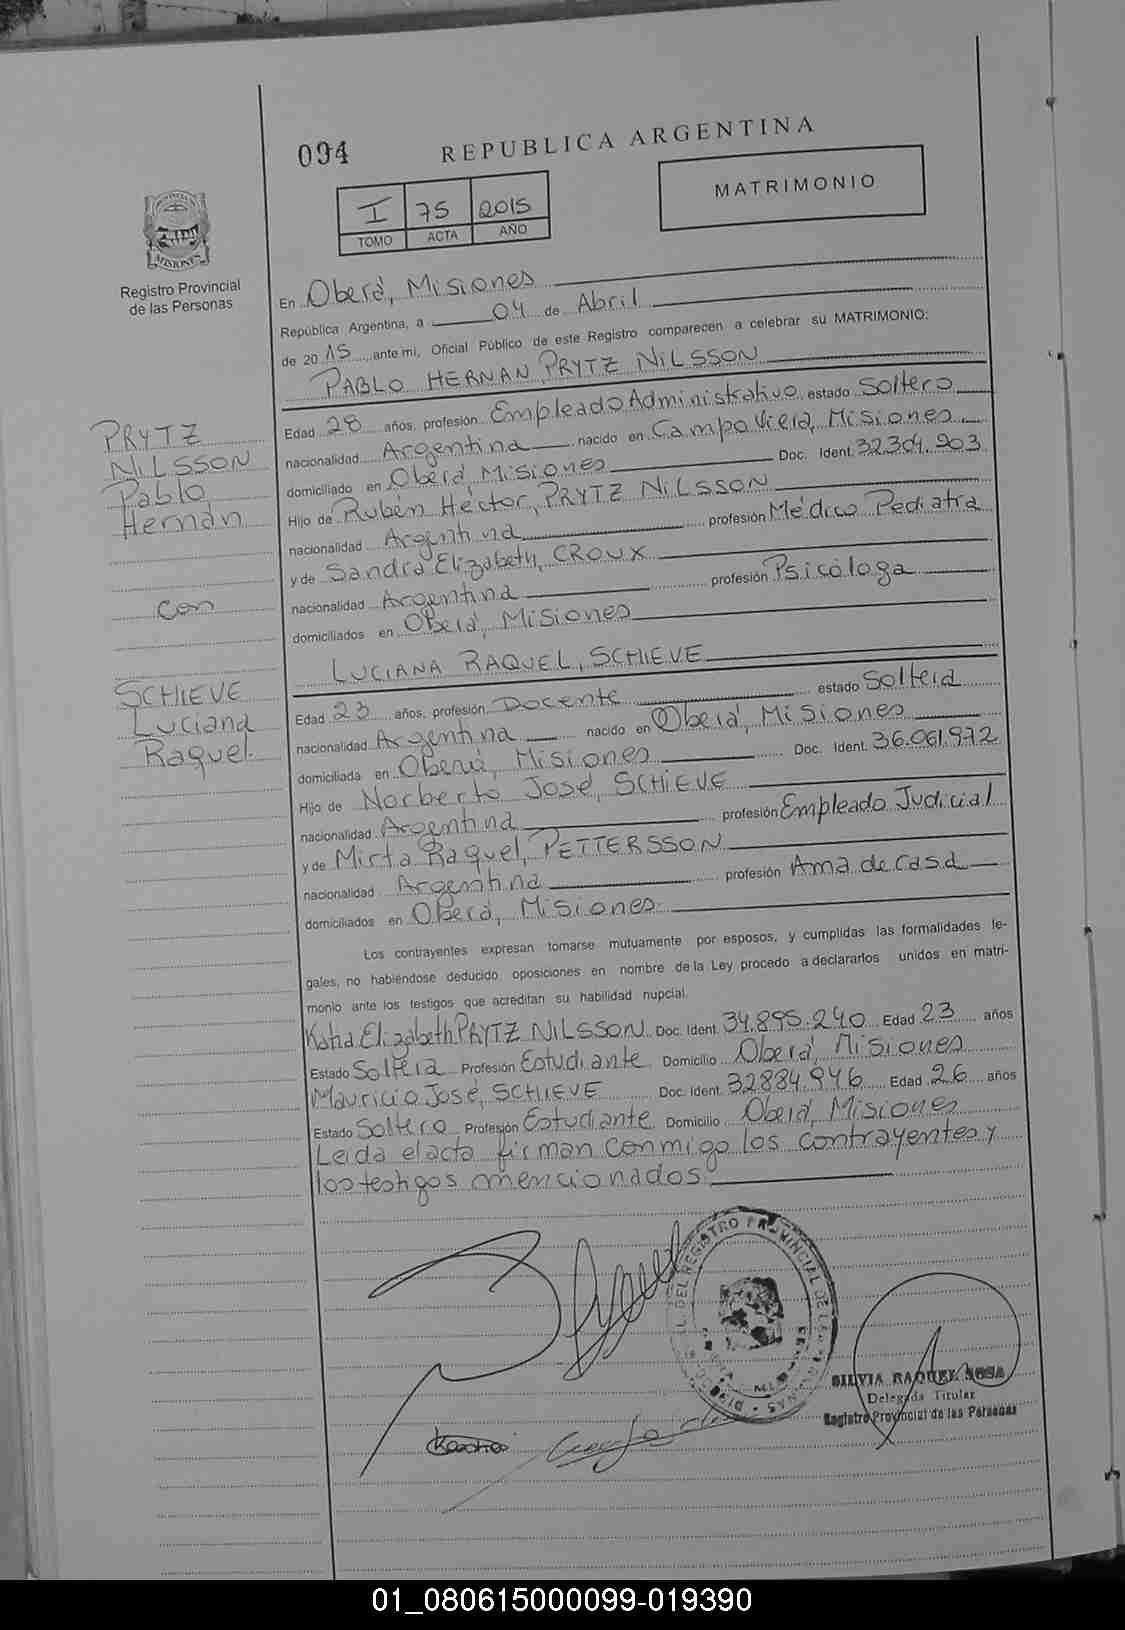 094
REPUBLICA ARGENTINA
MATRIMONIO
I 75 2015
TOMO ACTA AÑO
PROVINCIA DE
MISIONES
Registro Provincial
de las Personas
En Oberá, Misiones
República Argentina, a 04 de Abril
de 2015, ante mi, Oficial Público de este Registro comparecen a celebrar su MATRIMONIO:
PABLO HERNAN, PRYTZ NILSSON
Edad 28 años, profesión Empleado Administrativo estado Soltero
nacionalidad Argentina nacido en Campo Viera, Misiones
domiciliado en Oberá, Misiones Doc. Ident. 32.304.903
Hijo de Rubén Héctor, PRYTZ NILSSON
nacionalidad Argentina profesión Médico Pediatra
y de Sandra Elizabeth, CROUX
nacionalidad Argentina profesión Psicóloga
domiciliados en Oberá, Misiones
LUCIANA RAQUEL, SCHIEVE
Edad 23 años, profesión Docente estado Soltera
nacionalidad Argentina nacido en Oberá, Misiones
domiciliada en Oberá, Misiones Doc. Ident. 36.061.972
Hijo de Norberto José, SCHIEVE
nacionalidad Argentina profesión Empleado Judicial
y de Mirta Raquel, PETTERSSON
nacionalidad Argentina profesión Ama de casa
domiciliados en Oberá, Misiones.
PRYTZ
NILSSON
Pablo
Hernán
con
SCHIEVE
Luciana
Raquel.
Los contrayentes expresan tomarse mutuamente por esposos, y cumplidas las formalidades le-
gales, no habiéndose deducido oposiciones en nombre de la Ley procedo a declararlos unidos en matri-
monio ante los testigos que acreditan su habilidad nupcial.
Katia Elizabeth PRYTZ NILSSON Doc. Ident. 34.895.240 Edad 23 años
Estado Soltera Profesión Estudiante Domicilio Oberá, Misiones
Mauricio José, SCHIEVE Doc. Ident. 32884.946 Edad 26 años
Estado Soltero Profesión Estudiante Domicilio Oberá, Misiones
Leida el acta firman conmigo los contrayentes y
los testigos mencionados.
DEL REGISTRO PROVINCIAL DE LAS PERSONAS
SILVIA RAQUEL SOSA
Delegada Titular
Registro Provincial de las Personas
01_080615000099-019390